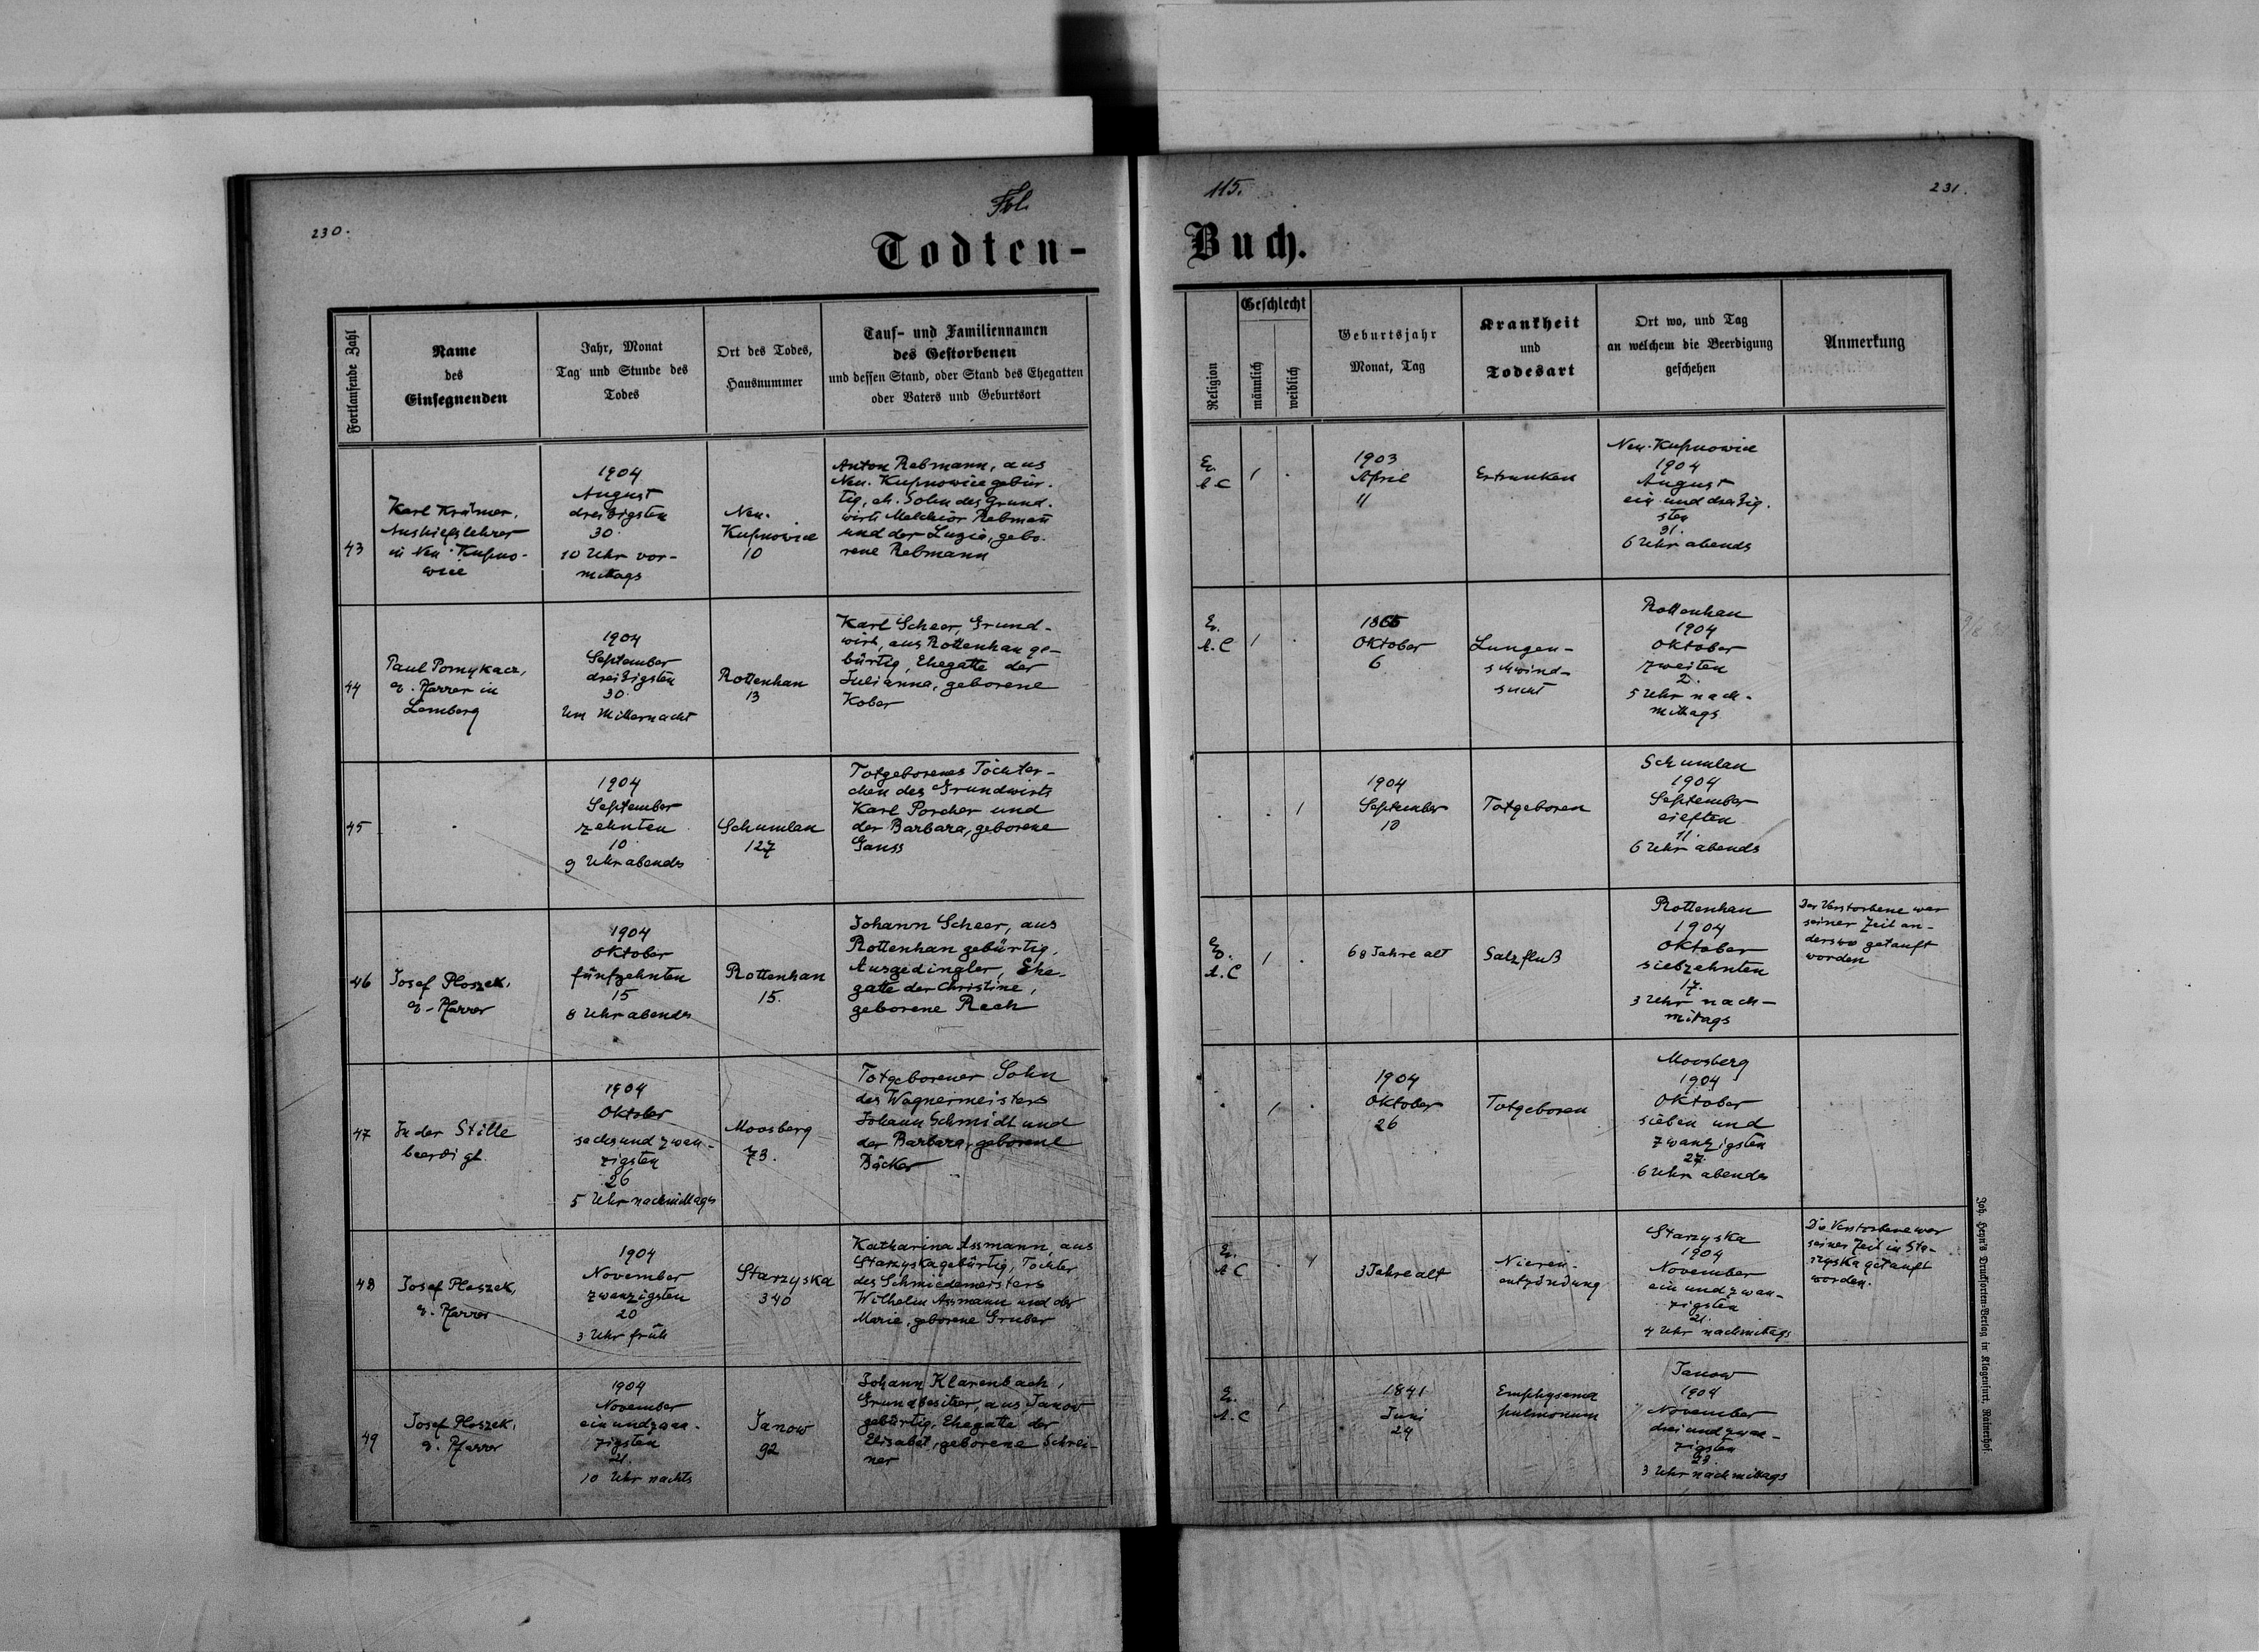 230.
Fol.
115.
231.
Todten-
Buch.
Fortlaufende Zahl
Name
des
Einsegnenden
Jahr, Monat
Tag und Stunde des
Todes
Ort des Todes,
Hausnummer
Tauf- und Familiennamen
des Gestorbenen
und dessen Stand, oder Stand des Ehegatten
oder Vaters und Geburtsort
Religion
Geschlecht
männlich
weiblich
Geburtsjahr
Monat, Tag
Krankheit
und
Todesart
Ort wo, und Tag
an welchem die Beerdigung
geschehen
Anmerkung
43
Karl Krämer,
Aushilfslehrer
in Neu-Kupno-
wice
1904
August
dreißigsten
30.
10 Uhr vor-
mittags
Neu-
Kupnowice
10
Anton Rebmann, aus
Neu-Kupnowice gebür-
tig, eh. Sohn des Grund-
wirts Melchior Rebmann
und der Luzie, gebo-
rene Rebmann
Ev.
A.C
1
.
1903
April
11
Ertrunken
Neu-Kupnowice
1904
August
ein und dreißig-
sten
31.
6 Uhr abends
44
Paul Pomykacz,
ev. Pfarrer in
Lemberg
1904
September
dreißigsten
30.
Um Mitternacht
Rottenhan
13
Karl Scheer, Grund-
wirt, aus Rottenhan ge-
bürtig, Ehegatte der
Julianna, geborene
Kober
Ev.
A.C
1
.
Oktober
6
Lungen-
schwind-
sucht
Rottenhan
1904
Oktober
zweiten
2.
5 Uhr nach-
mittags
45
.
1904
September
zehnten
10.
9 Uhr abends
Schumlau
127
Totgeborenes Töchter-
chen des Grundwirts
Karl Porcher und
der Barbara, geborene
Gauss
.
.
1
1904
September
10
Totgeboren
Schumlau
1904
September
eilften
11.
6 Uhr abends
46
Josef Ploszek,
ev. Pfarrer
1904
Oktober
fünfzehnten
15
8 Uhr abends
Rottenhan
15.
Johann Scheer, aus
Rottenhan gebürtig,
Ausgedingler, Ehe-
gatte der Christine,
geborene Rech
Ev.
A.C
1
.
68 Jahre alt
Salzfluß
Rottenhan
1904
Oktober
siebzehnten
17.
3 Uhr nach-
mitags
Der Verstorbene war
seiner Zeit an-
derswo getauft
worden
47
In der Stille
beerdigt.
1904
Oktober
sechsund zwan-
zigsten
26
5 Uhr nachmittags
Moosberg
73.
Totgeborener Sohn
des Wagnermeisters
Johann Schmidt und
der Barbara, geborene
Bäcker
.
1
.
1904
Oktober
26
Totgeboren
Moosberg
1904
Oktober
sieben und
zwanzigsten
27.
6 Uhr abends
48
Josef Ploszek,
ev. Pfarrer
1904
November
zwanzigsten
20
3 Uhr früh
Starzyska
340
Katharina Assmann, aus
Starzyska gebürtig, Tochter
des Schmiedemeisters
Wilhelm Assmann und der
Marie, geborene Gruber
Ev.
A.C
.
1
3 Jahre alt
Nieren-
entzündung
Starzyska
1904
November
ein und zwan-
zigsten
21.
4 Uhr nachmitags
Die Verstorbene war
seiner Zeit in Sta-
rzyska getauft
worden.
49
Josef Ploszek,
ev. Pfarrer
1904
November
ein undzwan-
zigsten
21.
10 Uhr nachts
Janow
92
Johann Klarenbach,
Grundbesitzer, aus Janow
gebürtig, Ehegatte der
Elisabet, geborene Schrei-
ner
Ev.
A.C
1
1841
Juni
24
Emphysema
pulmonum
Janow
1904
November
drei und zwan-
zigsten
23.
3 Uhr nachmittags
Joh. Heyn's Drucksorten-Verlag in Klagenfurt, Rainerhof.